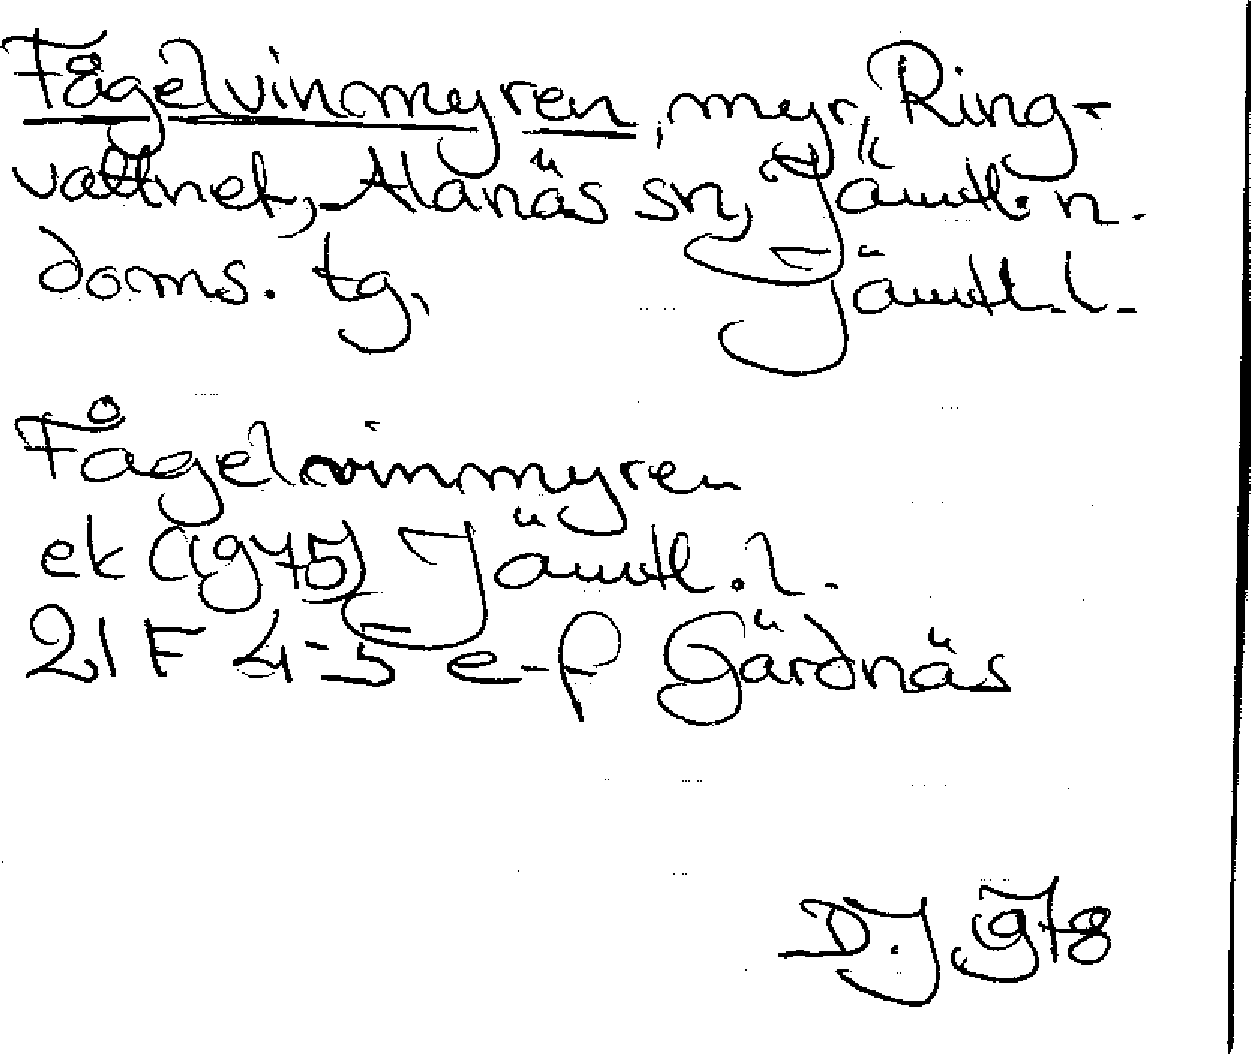 Fågelvinmyren, myr, Ring-
vattnet, Alanäs sn, Jämtl. n.
doms. tg, Jämtl. l.
Fågelvinmyren
ek (1975) Jämtl. l.
21 F 4-5 e-f Gärdnäs
D.J 1978